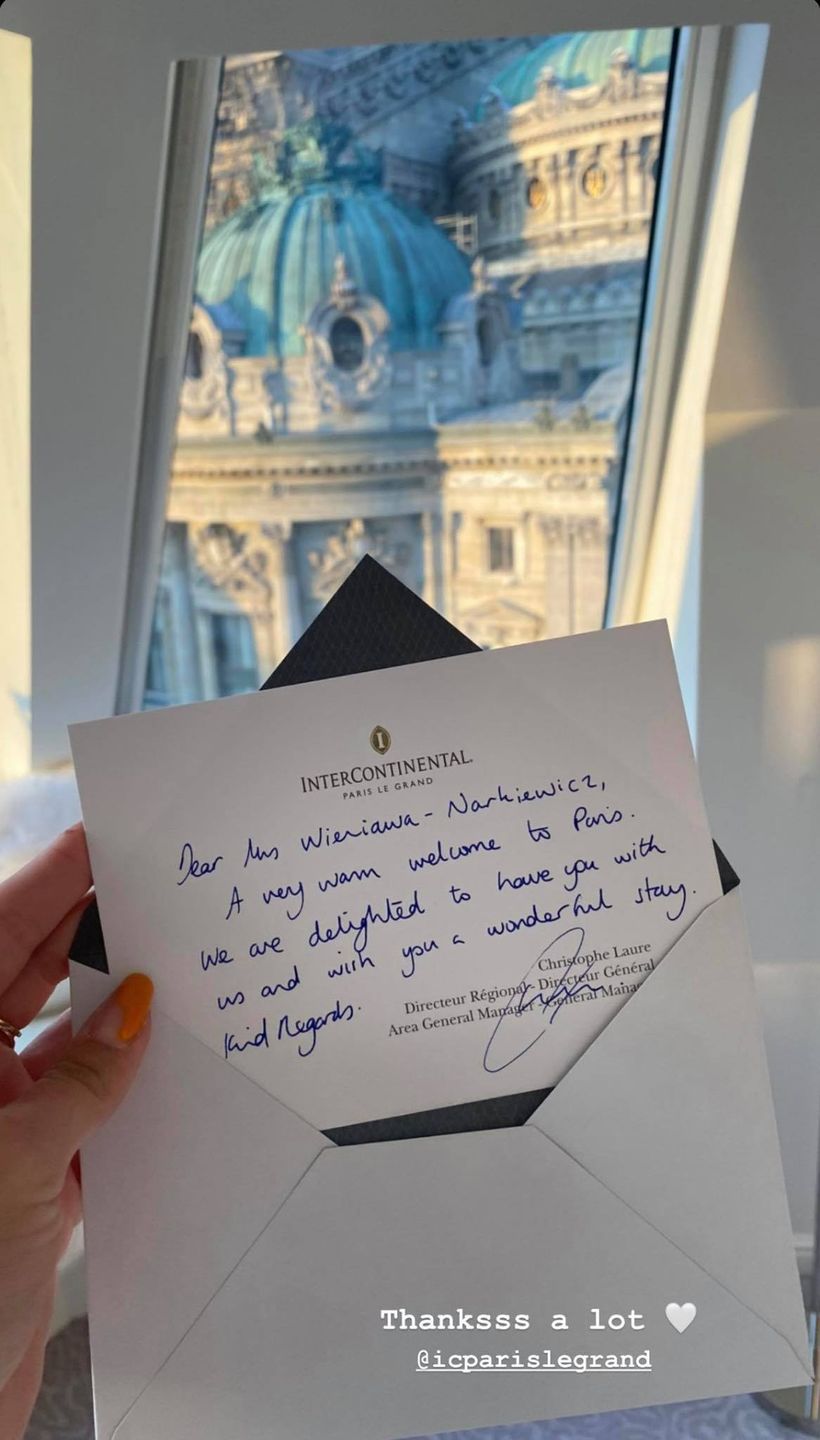 I
INTERCONTINENTAL
PARIS LE GRAND
Dear Mrs Wieniawa - Narkiewicz,
A very warm welcome to Paris.
We are delighted to have you with
us and wish you a wonderful stay.
Kind Regards.
Christophe Laure
Directeur Régional - Directeur Général
Area General Manager - General Manager
Thanksss a lot 🤍
@icparislegrand